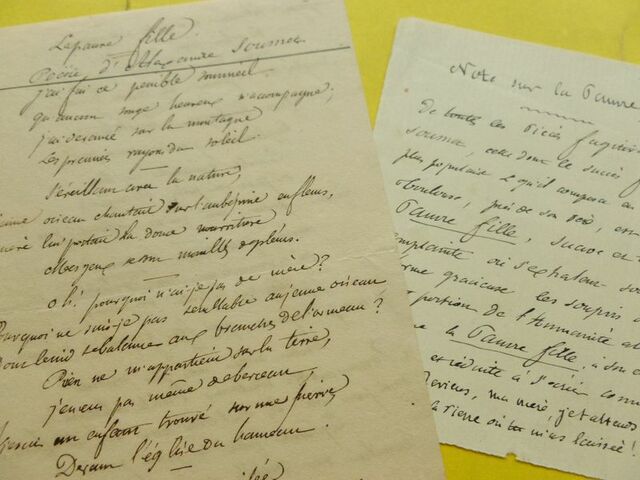 La pauvre fille.
Poésie d'Alexandre Soumet
j'ai fui ce pénible sommeil
qu'aucun songe heureux n'accompagne;
j'ai devancé sur la montagne
Les premiers rayons du soleil.
S'éveillant avec la nature,
jeune oiseau chantait sur l'aubépine en fleurs,
mère lui portait la douce nourriture
Mes yeux se sont mouillés de pleurs.
oh! pourquoi n'ai-je pas de mère?
Pourquoi ne suis-je pas semblable au jeune oiseau
Dont le nid se balance aux branches de l'ormeau?
Rien ne m'appartient sur la terre,
je n'eus pas même de berceau,
un enfant trouvé sur une pierre,
Devant l'église du hameau.
Note sur la Pauvre
De toutes les Pièces fugitives
Soumet, celle dont le succès
plus populaire et qu'il composa au
près de son
Pauvre fille, suave et
complainte où s'exhalent sous
forme gracieuse les soupirs
portion de l'humanité
la Pauvre fille, à son
réduite à s'écrier
Reviens, ma mère, je t'attends
la Pierre où tu m'as laissée!